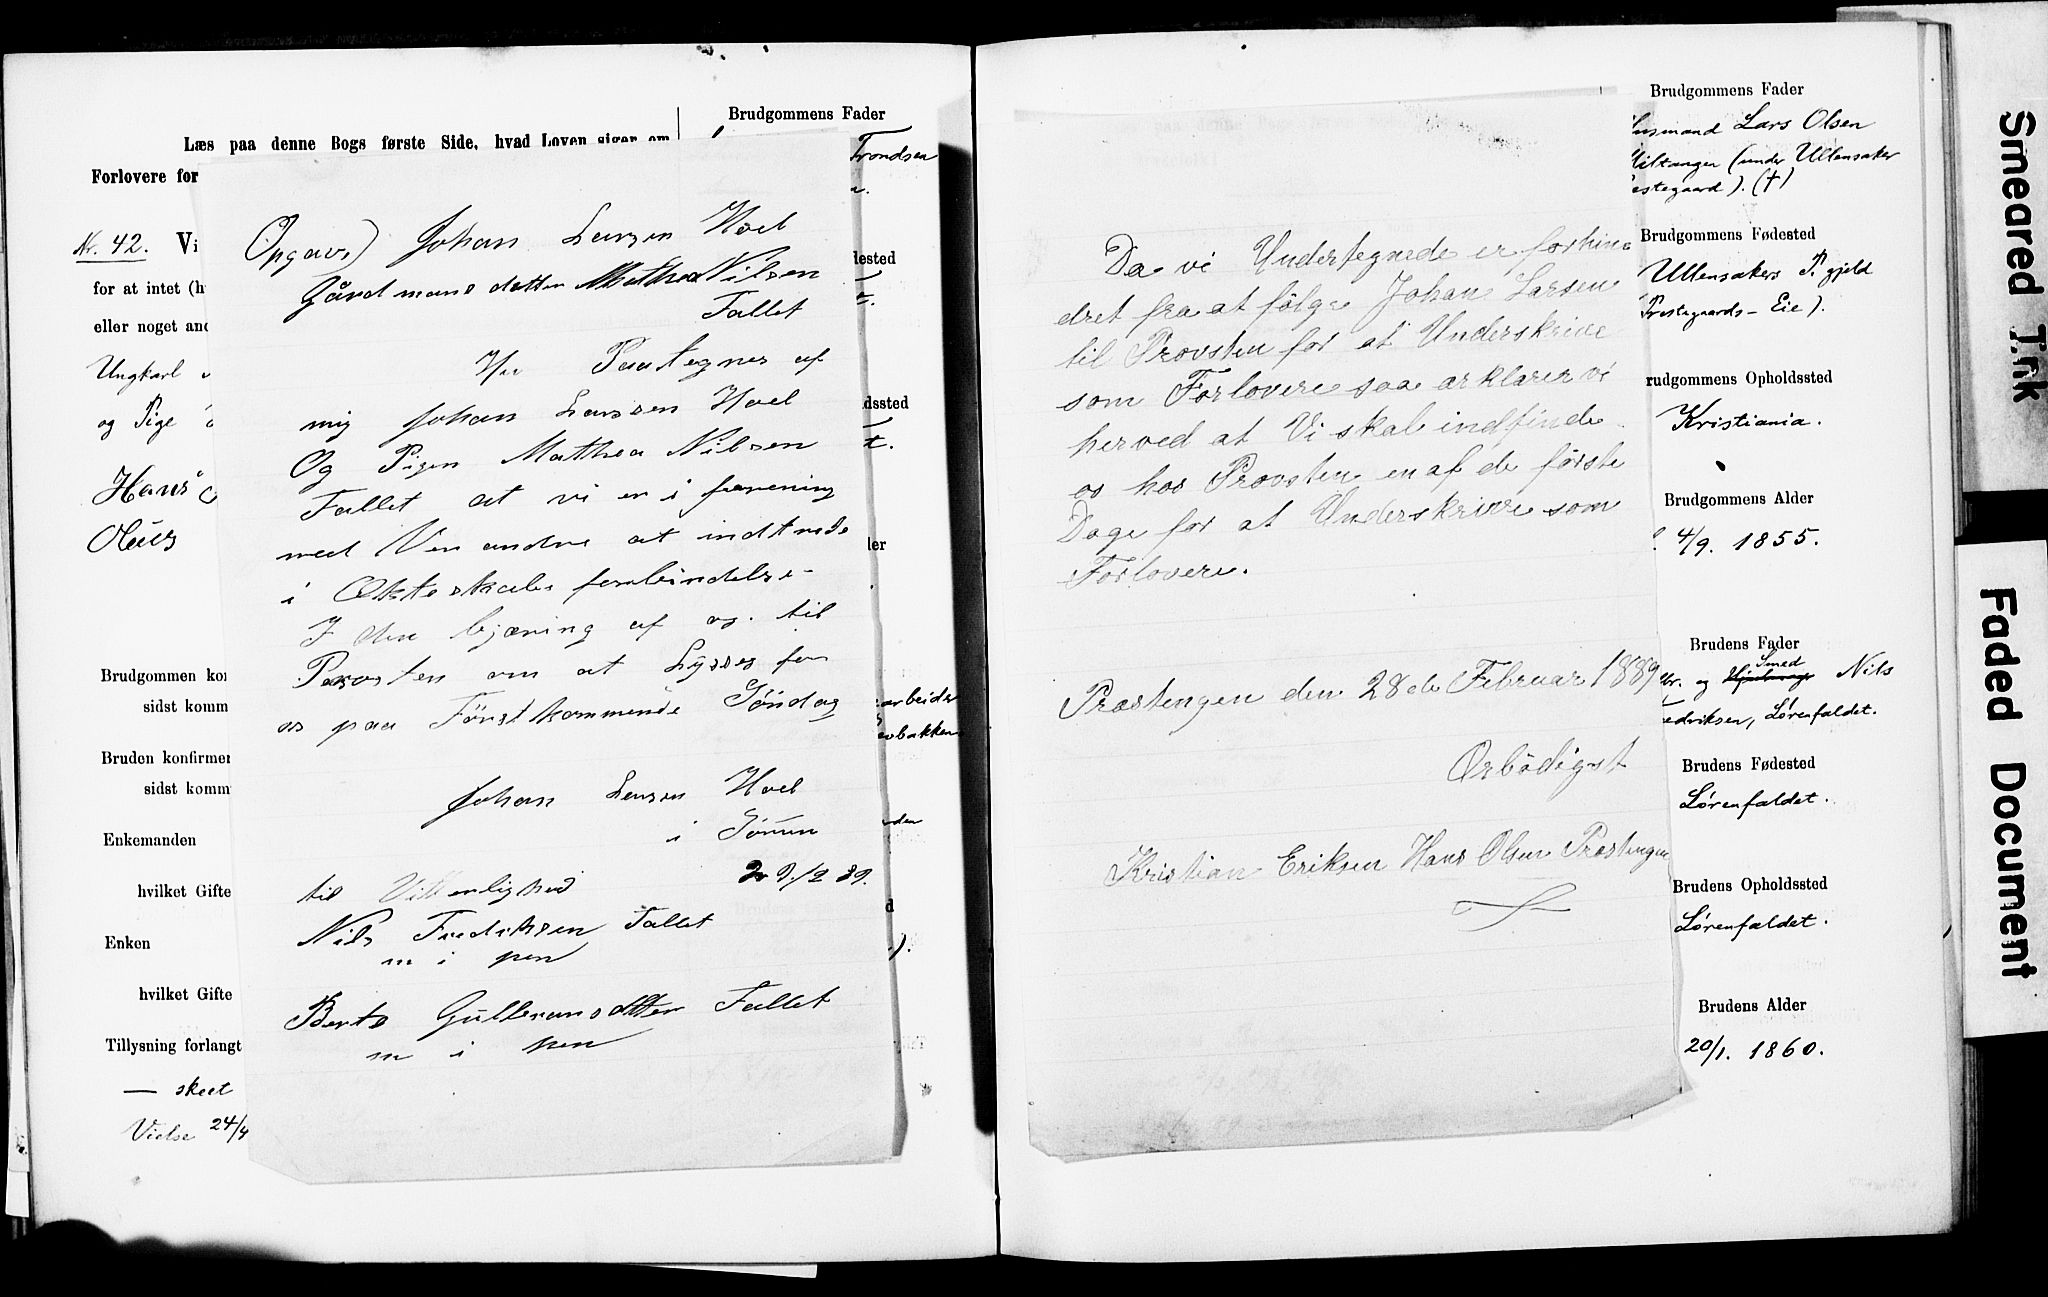 Læs paa denne Bogs første Side, hvad Loven siger om
Forlovere for
Nr. 42. Vi
for at intet (h
eller noget and
Ungkarl
og Pige
Hans
Brudgommen kon
sidst komm
Bruden konfirmer
sidst komm
Enkemanden
hvilket Gifte
Enken
hvilket Gifte
Tillysning forlangt
— skeet
Vielse 24/4
Brudgommens Fader
Trondsen
dested
dssted
arbeider
bakken
Opgave) Johan Larsen Hoel
Gårdmans datter Mathea Nilsen
Fallet
Her Paategnes af
mig Johan Larsen Hoel
Og Pigen Matthea Nilsen
Fallet at vi er i forening
med Ver andre at indtrede
i Ækteskabs forbindelse
I den bjæring af os. til
Provsten om at Lyses for
os paa Förstkommende Söndag
Johan Larsen Hoel
i Sörum
til Vitterlighed
Nils Fredriksen Fallet
m i pen
Berte Gulbransdatter Fallet
m i pen
Da vi Undertegnede er forhin=
dret fra at fölge Johan Larsen
til Provsten for at Underskrive
som Forlovere saa erklarer vi
herved at Vi skal indfinde
os hos Provsten en af de förste
Dage for at Underskrive som
Forlovere.
Præstengen den 28de Februar 1889
Ærbödigst
Kristian Eriksen Hans Olsen Præstengen
Brudgommens Fader
Husmand Lars Olsen
Miltangen (under Ullensaker
Prestegaard). (†)
Brudgommens Fødested
Ullensakers P. gjeld
(Prestegaards-Eie).
rudgommens Opholdssted
Kristiania.
Brudgommens Alder
4/9. 1855.
Brudens Fader
Smed
br. og Nils
Fredriksen, Lørenfaldet.
Brudens Fødested
Lørenfaldet.
Brudens Opholdssted
Lørenfaldet.
Brudens Alder
20/1. 1860.
Smeared Ink
Faded Document